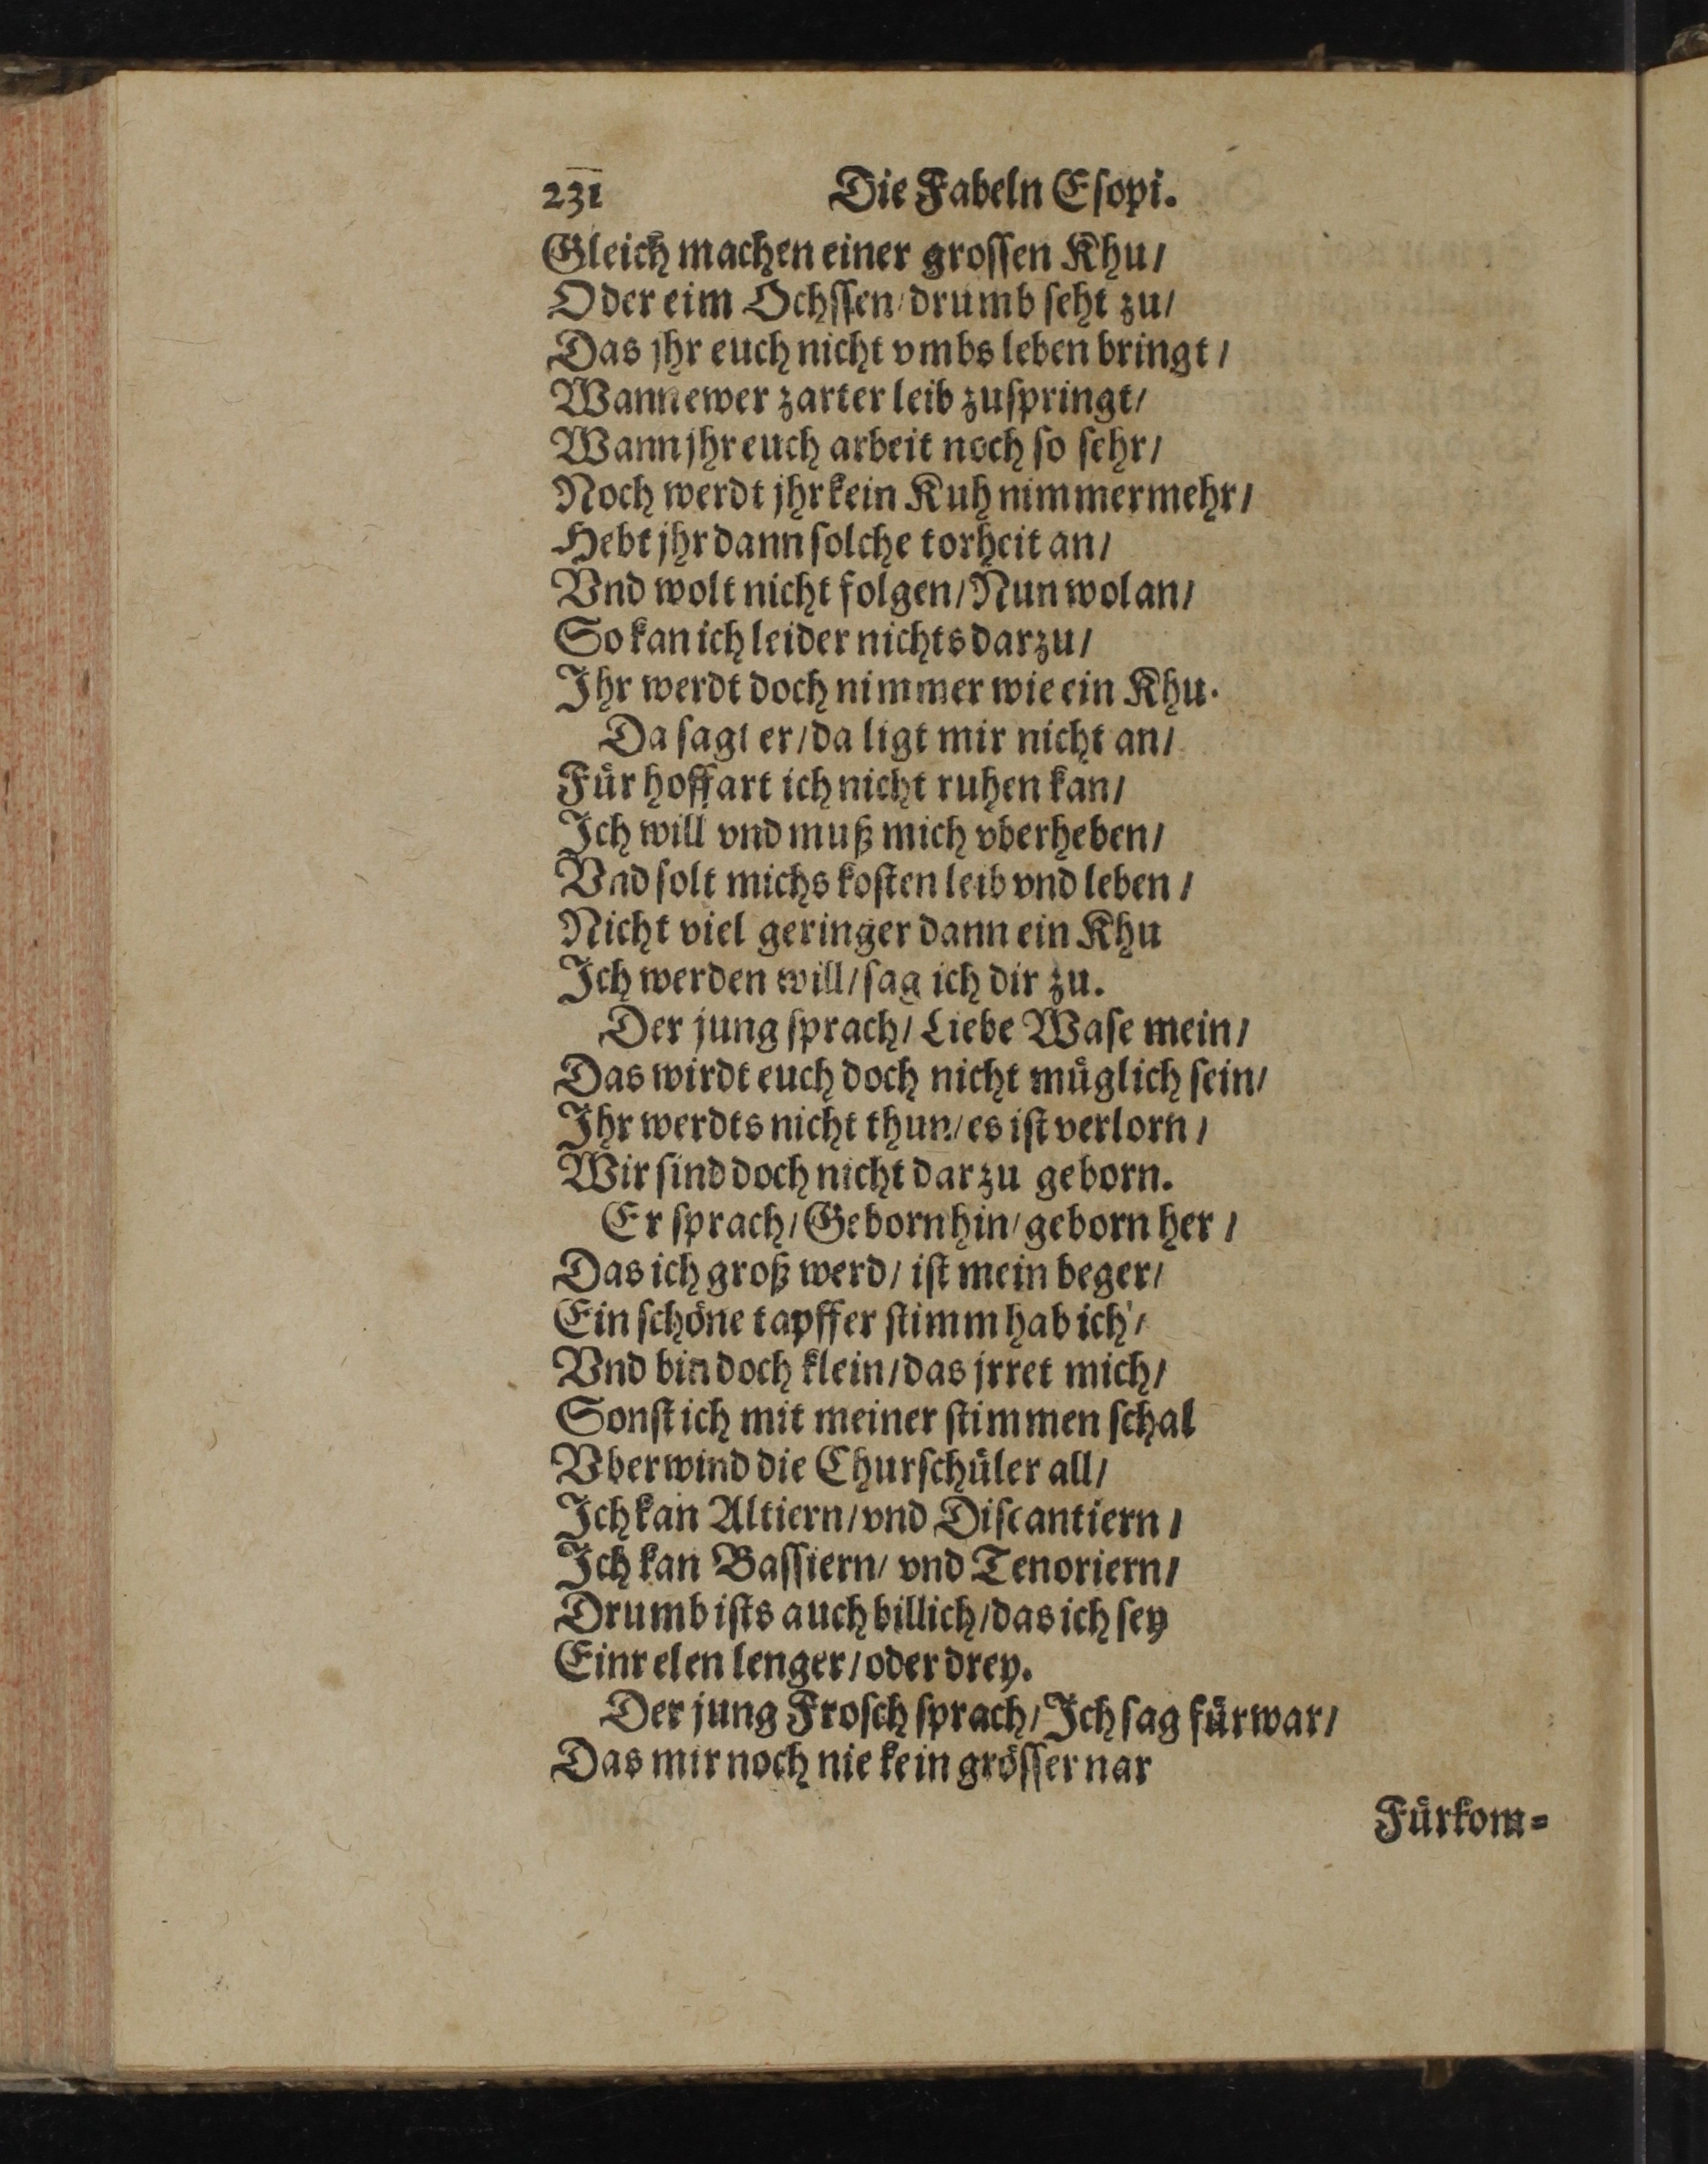 231 Die Fabeln Eſopi.
Gleich machen einer groſſen Khu/
Oder eim Ochſſen/drumb ſeht zu/
Das jhr euch nicht vmbs leben bringt/
Wann ewer zarter leib zuſpringt/
Wann jhr euch arbeit noch ſo ſehr/
Noch werdt jhr kein Kuh nimmermehr/
Hebt jhr dann ſolche torheit an/
Vnd wolt nicht folgen/Nun wolan/
So kan ich leider nichts darzu/
Ihr werdt doch nimmer wie ein Khu.
Da ſagt er/da ligt mir nicht an/
Fuͤr hoffart ich nicht ruhen kan/
Ich will vnd muß mich vberheben/
Vnd ſolt michs koſten leib vnd leben/
Nicht viel geringer dann ein Khu
Ich werden will/ſag ich dir zu.
Der jung ſprach/Liebe Waſe mein/
Das wirdt euch doch nicht muͤglich ſein/
Ihr werdts nicht thun/es iſt verlorn/
Wir ſind doch nicht darzu geborn.
Er ſprach/Geborn hin/geborn her/
Das ich groß werd/iſt mein beger/
Ein ſchoͤne tapffer ſtimm hab ich/
Vnd bin doch klein/das jrret mich/
Sonſt ich mit meiner ſtimmen ſchal
Vberwind die Churſchuͤler all/
Ich kan Altiern/vnd Diſcantiern/
Ich kan Baſſiern/vnd Tenoriern/
Drumb iſts auch billich/das ich ſey
Einr elen lenger/oder drey.
Der jung Froſch ſprach/Ich ſag fuͤrwar/
Das mir noch nie kein groͤſſer nar
Fuͤrkom⸗